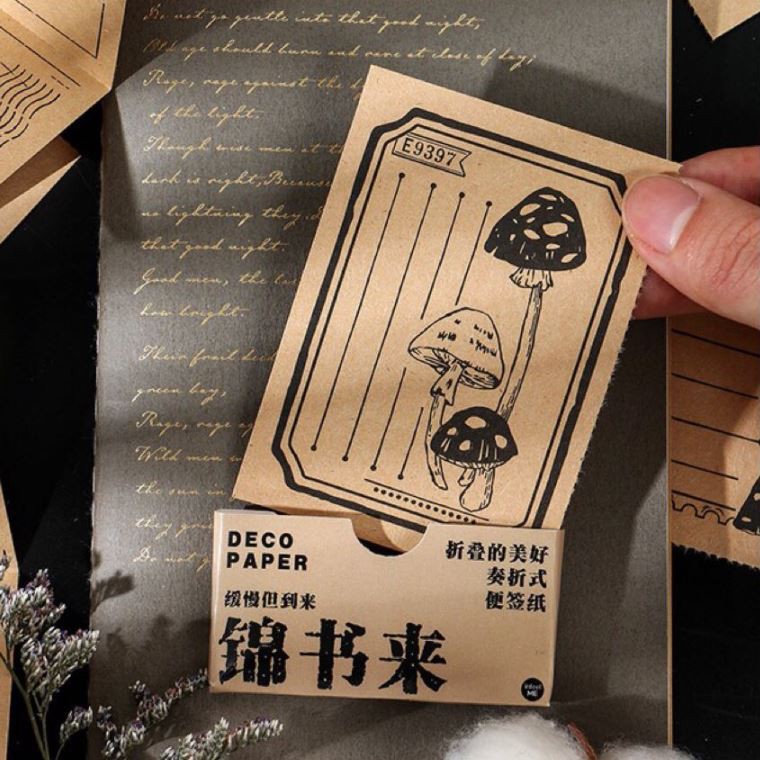 Do not go gentle into that good night,
Old age should burn and rave at close of day;
Rage, rage against the
of the light.
Though wise men at
dark is right, Because
no lightning they
that good night.
Good men, the
how bright.
Their frail
green bay,
Rage, rage
Wild men
the sun in
they
Do not
E9397
DECO
PAPER
折叠的美好
奏折式
便签纸
缓慢但到来
锦书来